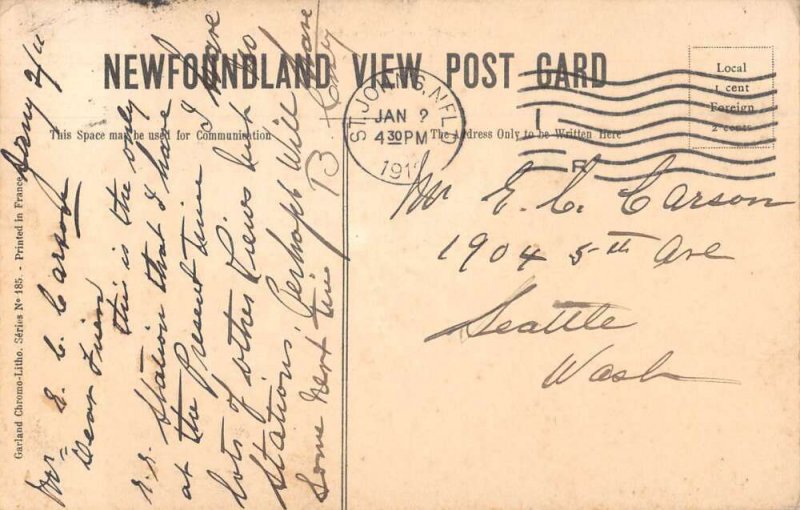 NEWFOUNDLAND VIEW POST CARD
This Space may be used for Communication
The Address Only to be Written Here
Local
1 cent
Foreign
2 cents
ST. JOHN'S, NFLD
JAN 2
4 30 PM
191
Garland Chromo-Litho. Séries No 185. - Printed in France
Mr E. C. Carson
Dear Friend
this is the only
R.R. Station that I have
at the Present time I have
lots of other Views but no
Stations. Perhaps Will have
Some Next Time
B.
Mr E. C. Carson
1904 5th Ave
Seattle
Wash